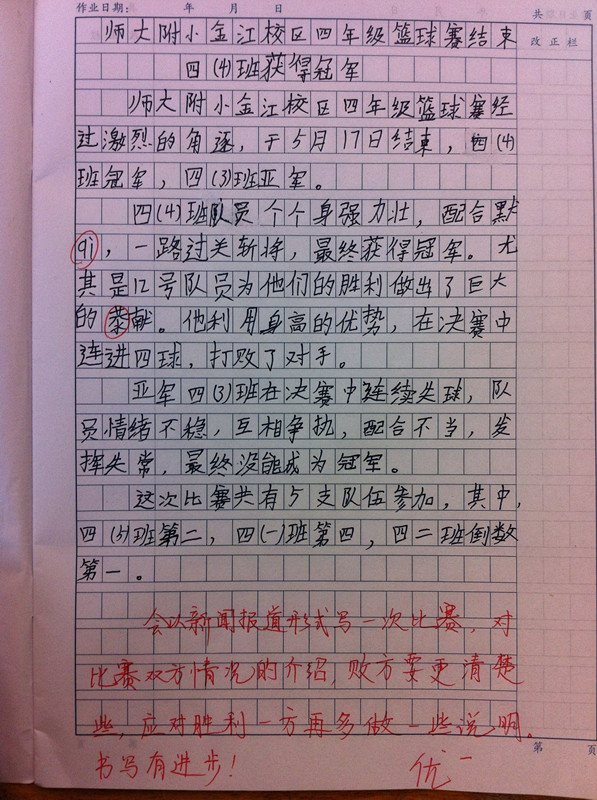 作业日期： 年 月 日
共 页
师大附小金江校区四年级篮球赛结束
改正栏
四(4)班获得冠军
师大附小金江校区四年级篮球赛经
过激烈的角逐，于5月17日结束，四(4)
班冠军，四(3)班亚军。
四(4)班队员个个身强力壮，配合默
qi，一路过关斩将，最终获得冠军。尤
其是12号队员为他们的胜利做出了巨大
的恭献。他利用身高的优势，在决赛中
连进四球，打败了对手。
亚军四(3)班在决赛中连续失球，队
员情绪不稳，互相争执，配合不当，发
挥失常，最终没能成为冠军。
这次比赛共有5支队伍参加，其中，
四(5)班第二，四(一)班第四，四二班倒数
第一。
会以新闻报道形式写一次比赛，对
比赛双方情况的介绍，败方要更清楚
些，应对胜利一方再多做一些说明。
书写有进步！
优一
第 页